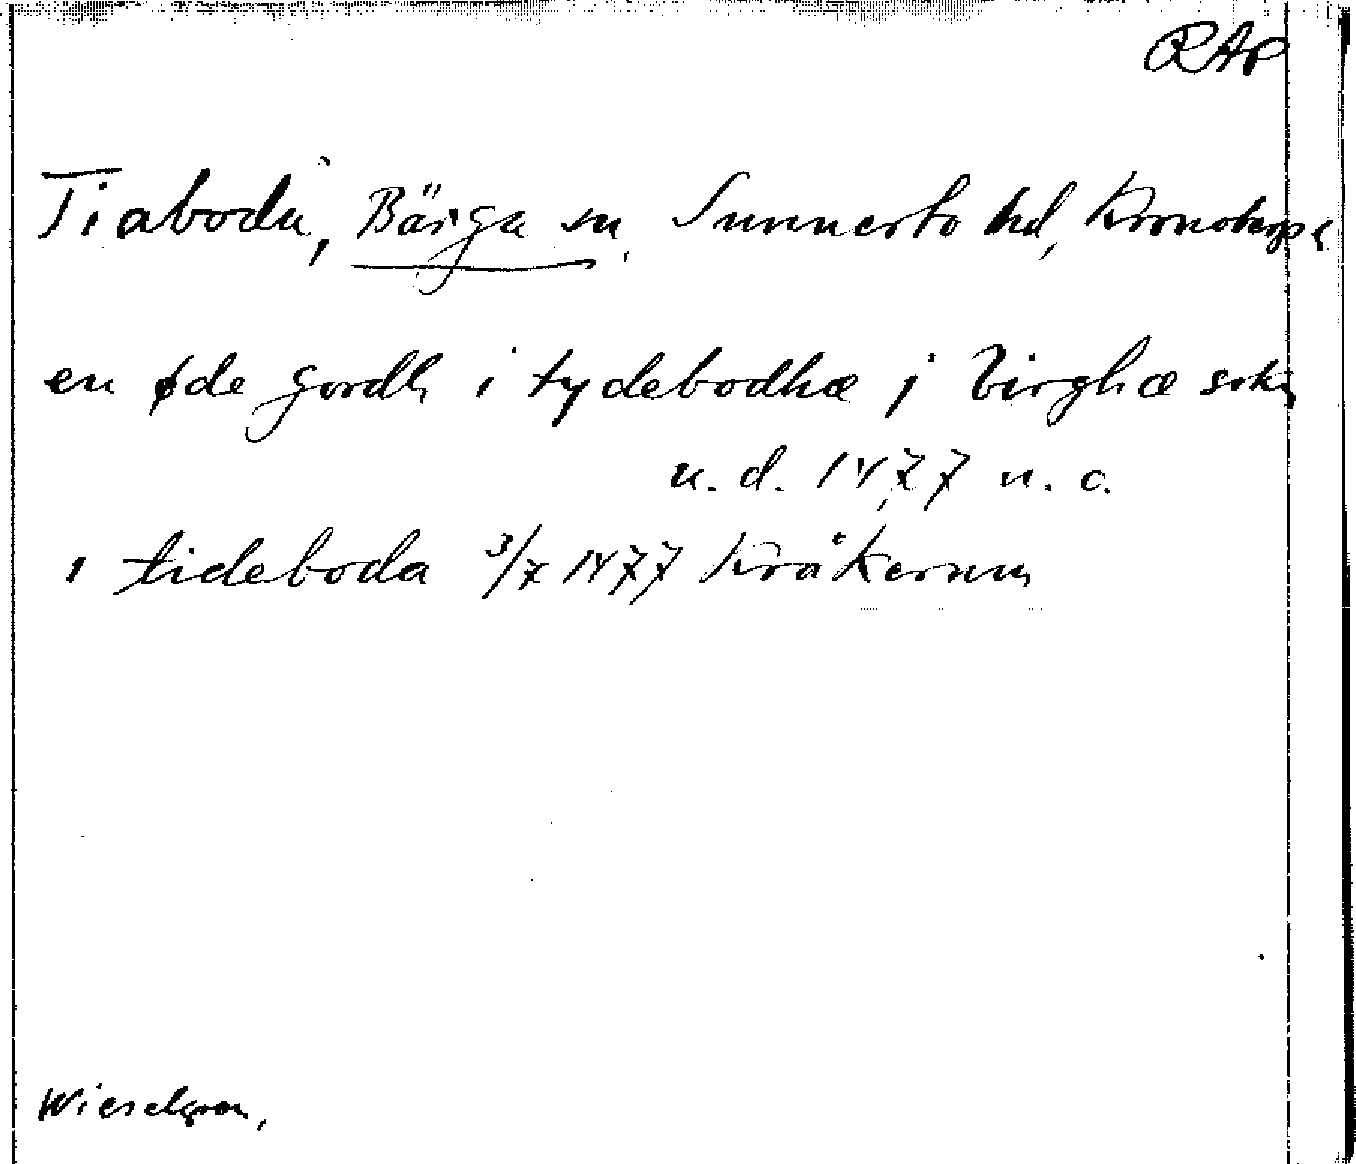 RAP
Tiaboda, Bärga sn, Sunnerbo hd, Kronobergs l
en øde gordh i tydebodhæ j birghæ sokn
u.d. 1477 n. c.
i tideboda 3/7 1477 Kråkerum
Wieselgren,